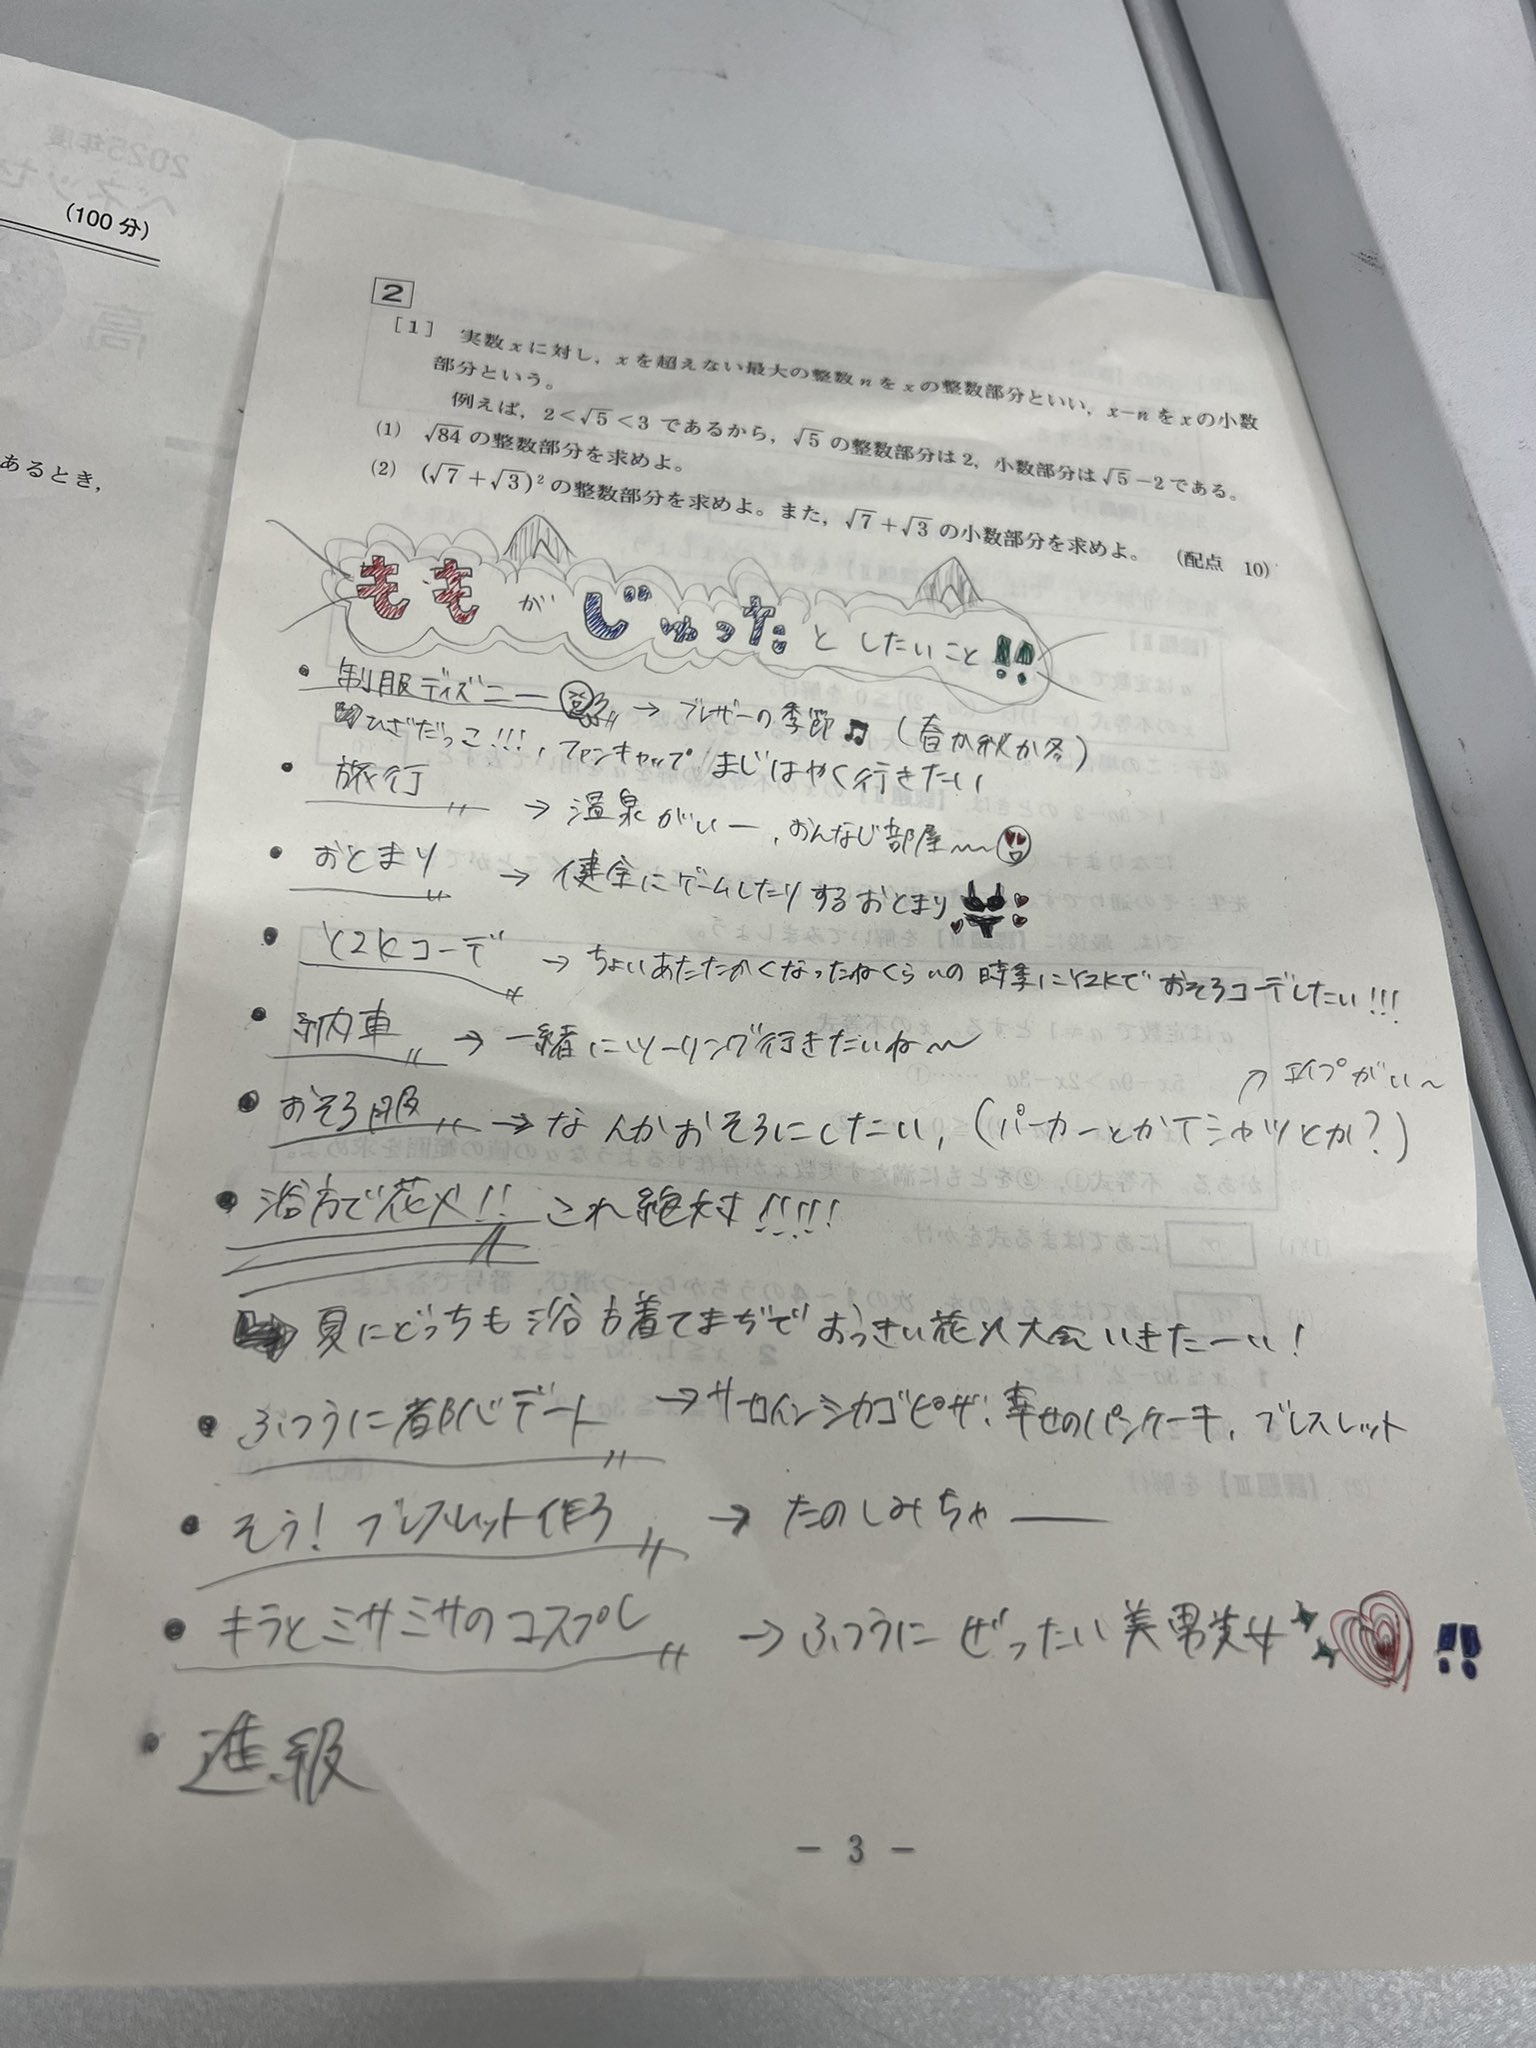 (100分)
あるとき,
2
[1] 実数xに対し，xを超えない最大の整数nをxの整数部分といい，x−nをxの小数
部分という。
例えば，2<√5<3であるから，√5の整数部分は2，小数部分は√5−2である。
(1) √84の整数部分を求めよ。
(2) (√7+√3)²の整数部分を求めよ。また，√7+√3の小数部分を求めよ。 (配点 10)
ももがじゅったとしたいこと!!
・制服ディズニー → ブレザーの季節♫ (春か秋か冬)
ひざだっこ!!!, ファンキャップ まじはやく行きたい
・旅行 → 温泉がいー, おんなじ部屋〜〜
・おとまり → 健全にゲームしたりするおとまり
・Y2Kコーデ → ちょいあたたかくなったねくらいの時季にY2Kでおそろコーデしたい!!!
・納車 → 一緒にツーリング行きたいね〜
・おそろ服 → なんかおそろにしたい, (パーカーとかTシャツとか?)
↗ がい〜
・浴衣で花火!! これ絶対!!!!
夏にどっちも浴衣着てまぢでおっきい花火大会いきたーい!
・ふつうに都心デート → サーロインシカゴピザ, 幸せのパンケーキ, ブレスレット
・そう! ブレスレット作ろ → たのしみちゃー
・キラとミサミサのコスプレ → ふつうにぜったい美男美女!!
・進級
− 3 −